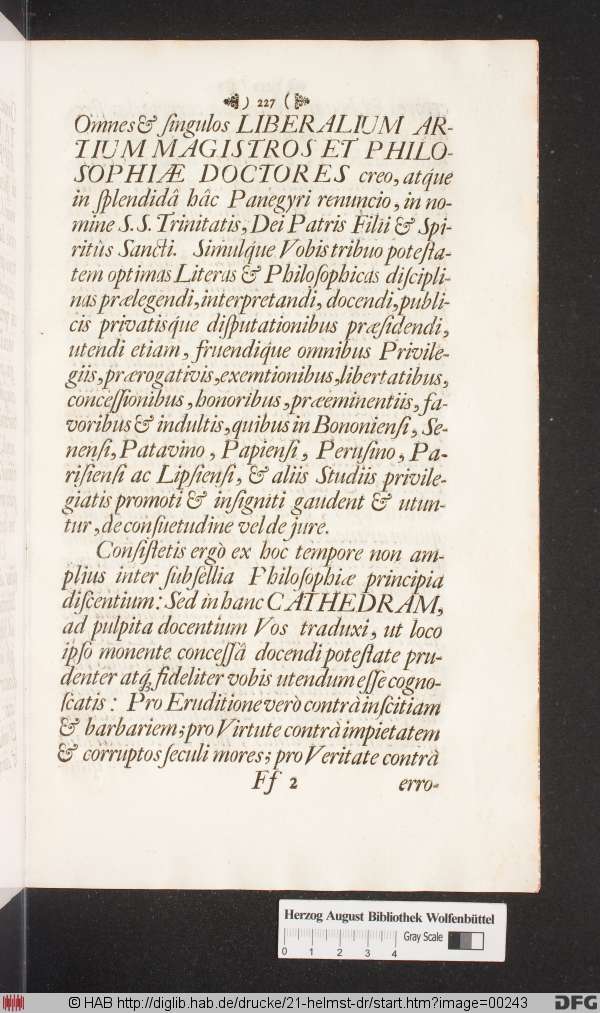 ) 227 (
Omnes & ſingulos LIBERALIUM AR-
TIUM MAGISTROS ET PHILO-
SOPHIÆ DOCTORES creo, atq́ue
in ſplendidâ hâc Panegyri renuncio, in no-
mine S. S. Trinitatis, Dei Patris Filii & Spi-
ritûs Sancti. Simulq́ue Vobis tribuo poteſta-
tem optimas Literas & Philoſophicas diſcipli-
nas prælegendi, interpretandi, docendi, publi-
cis privatisq́ue diſputationibus præſidendi,
utendi etiam, fruendiq́ue omnibus Privile-
giis, prærogativis, exemtionibus, libertatibus,
conceſſionibus, honoribus, præeminentiis, fa-
voribus & indultis, quibus in Bononienſi, Se-
nenſi, Patavino, Papienſi, Peruſino, Pa-
riſienſi ac Lipſienſi, & aliis Studiis privile-
giatis promoti & inſigniti gaudent & utun-
tur, de conſuetudine vel de jure.
Conſiſtetis ergò ex hoc tempore non am-
plius inter ſubſellia Philoſophiæ principia
diſcentium: Sed in hanc CATHEDRAM,
ad pulpita docentium Vos traduxi, ut loco
ipſo monente conceſſâ docendi poteſtate pru-
denter atq́; fideliter vobis utendum eſſe cogno-
ſcatis: Pro Eruditione verò contrà inſcitiam
& barbariem; pro Virtute contrà impietatem
& corruptos ſeculi mores; pro Veritate contrà
Ff 2 erro-
Herzog August Bibliothek Wolfenbüttel
0 1 2 3 4 Gray Scale
© HAB http://diglib.hab.de/drucke/21-helmst-dr/start.htm?image=00243
DFG